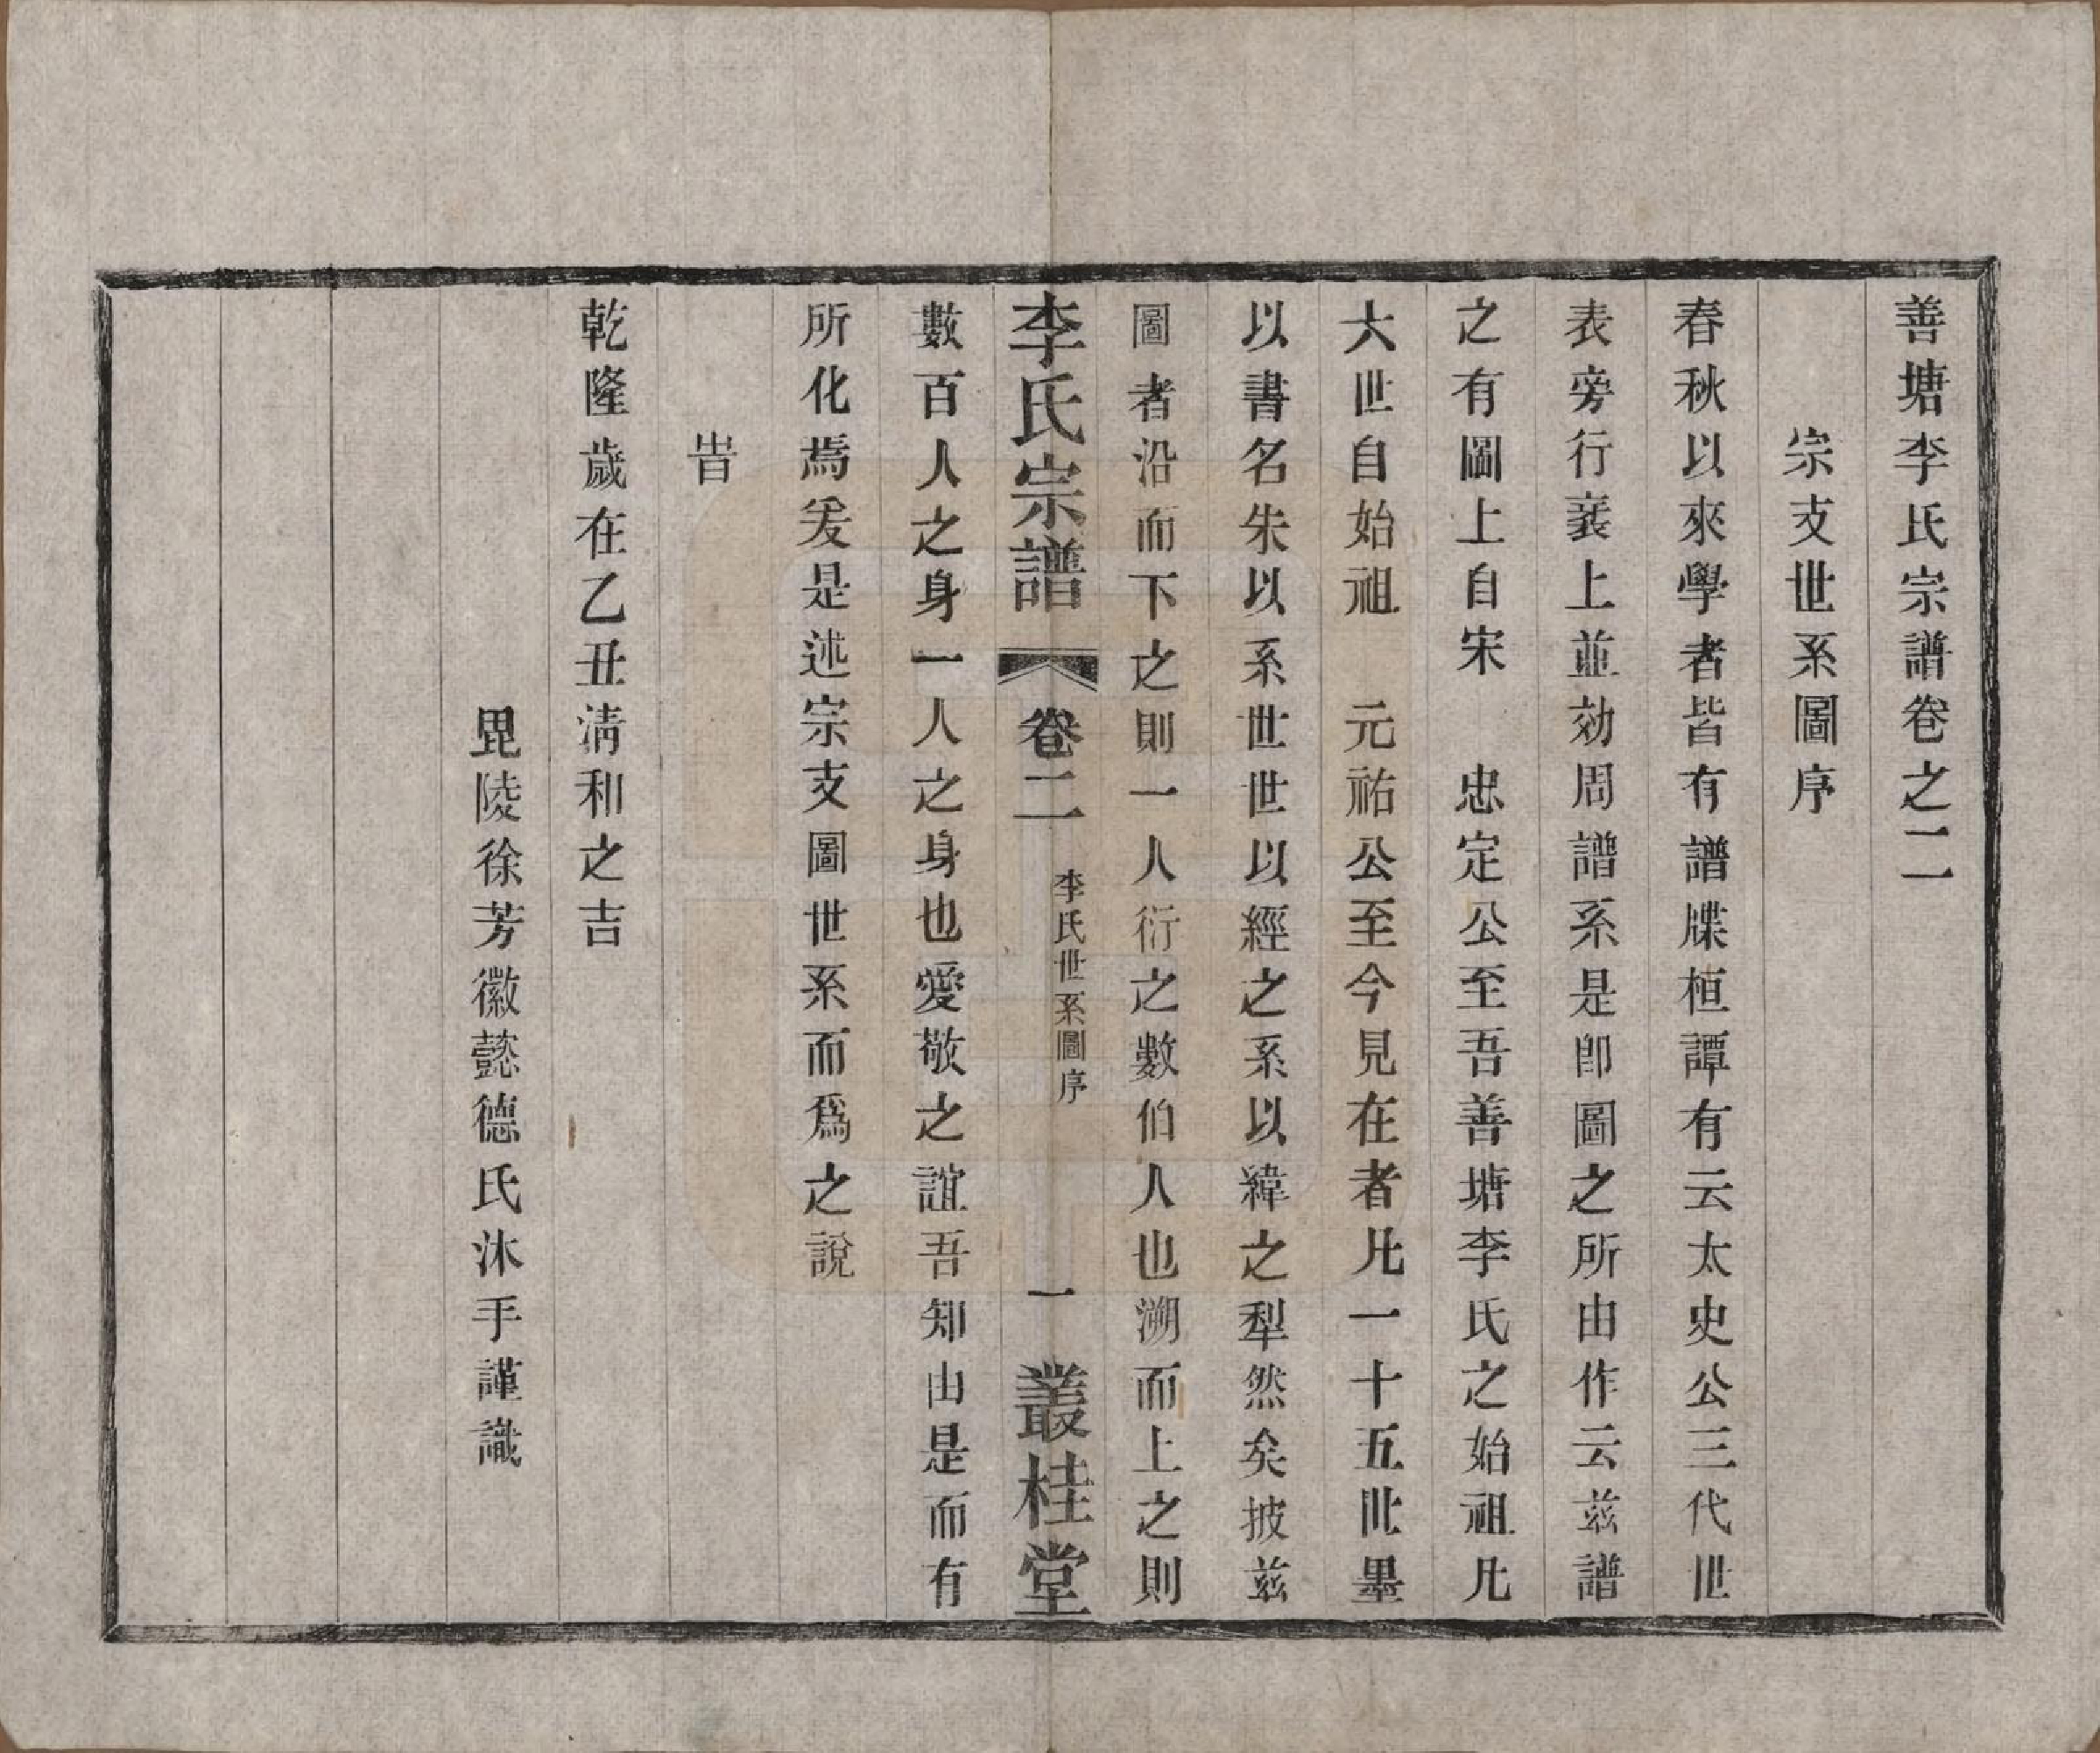 善塘李氏宗譜卷之二
宗支世系圖序
春秋以來學者皆有譜牒桓譚有云太史公三代世
表旁行袤上並効周譜系是卽圖之所由作云茲譜
之有圖上自宋　忠定公至吾善塘李氏之始祖凡
大世自始祖　元祐公至今見在者凡一十五世墨
以書名朱以系世世以經之系以緯之犁然矣披茲
圖者沿而下之則一人衍之數伯人也溯而上之則
李氏宗譜
卷二
李氏世系圖序
一
叢桂堂
數百人之身一人之身也愛敬之誼吾知由是而有
所化焉爰是述宗支圖世系而爲之說
旹
乾隆歲在乙丑淸和之吉
毘陵徐芳徽懿德氏沐手謹識